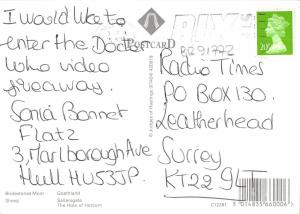 I would like to
enter the Doctor
Who video
giveaway.
Sonia Bonnet
Flat 2
3, Marlborough Ave
Hull HU5 3JP.
Bridestones Moor
Goathland
Sheep
Saltersgate
The Hole of Horcum
POSTCARD
© Judges of Hastings
20p
Radio Times
PO BOX 130.
Leatherhead
Surrey
KT22 9LT
C12281
5 014835 660006